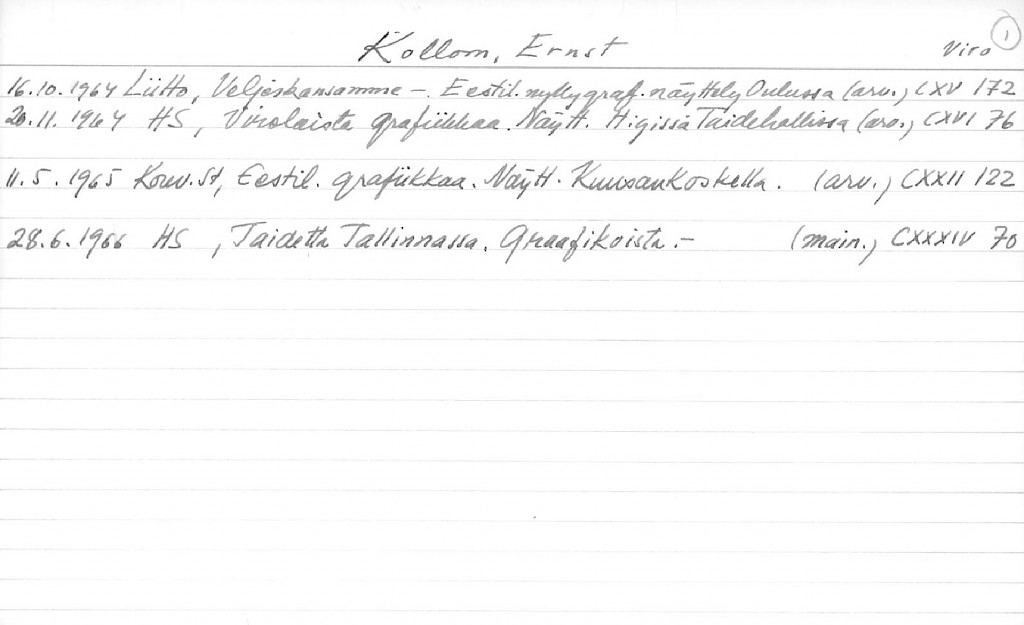 Kollom, Ernst Viro 1
16.10.1964 Liitto, Veljeskansamme - . Eestil. nykygraf. näyttely Oulussa (arv.) CXV 172
20.11.1964 HS, Virolaista grafiikkaa. Näytt. H:gissä Taidehallissa (arv.) CXVI 76
11.5.1965 Kouv. St, Eestil. grafiikkaa. Näytt. Kuusankoskella. (arv.) CXXII 122
28.6.1966 HS , Taidetta Tallinnassa. Graafikoista. - (main.) CXXXIV 70